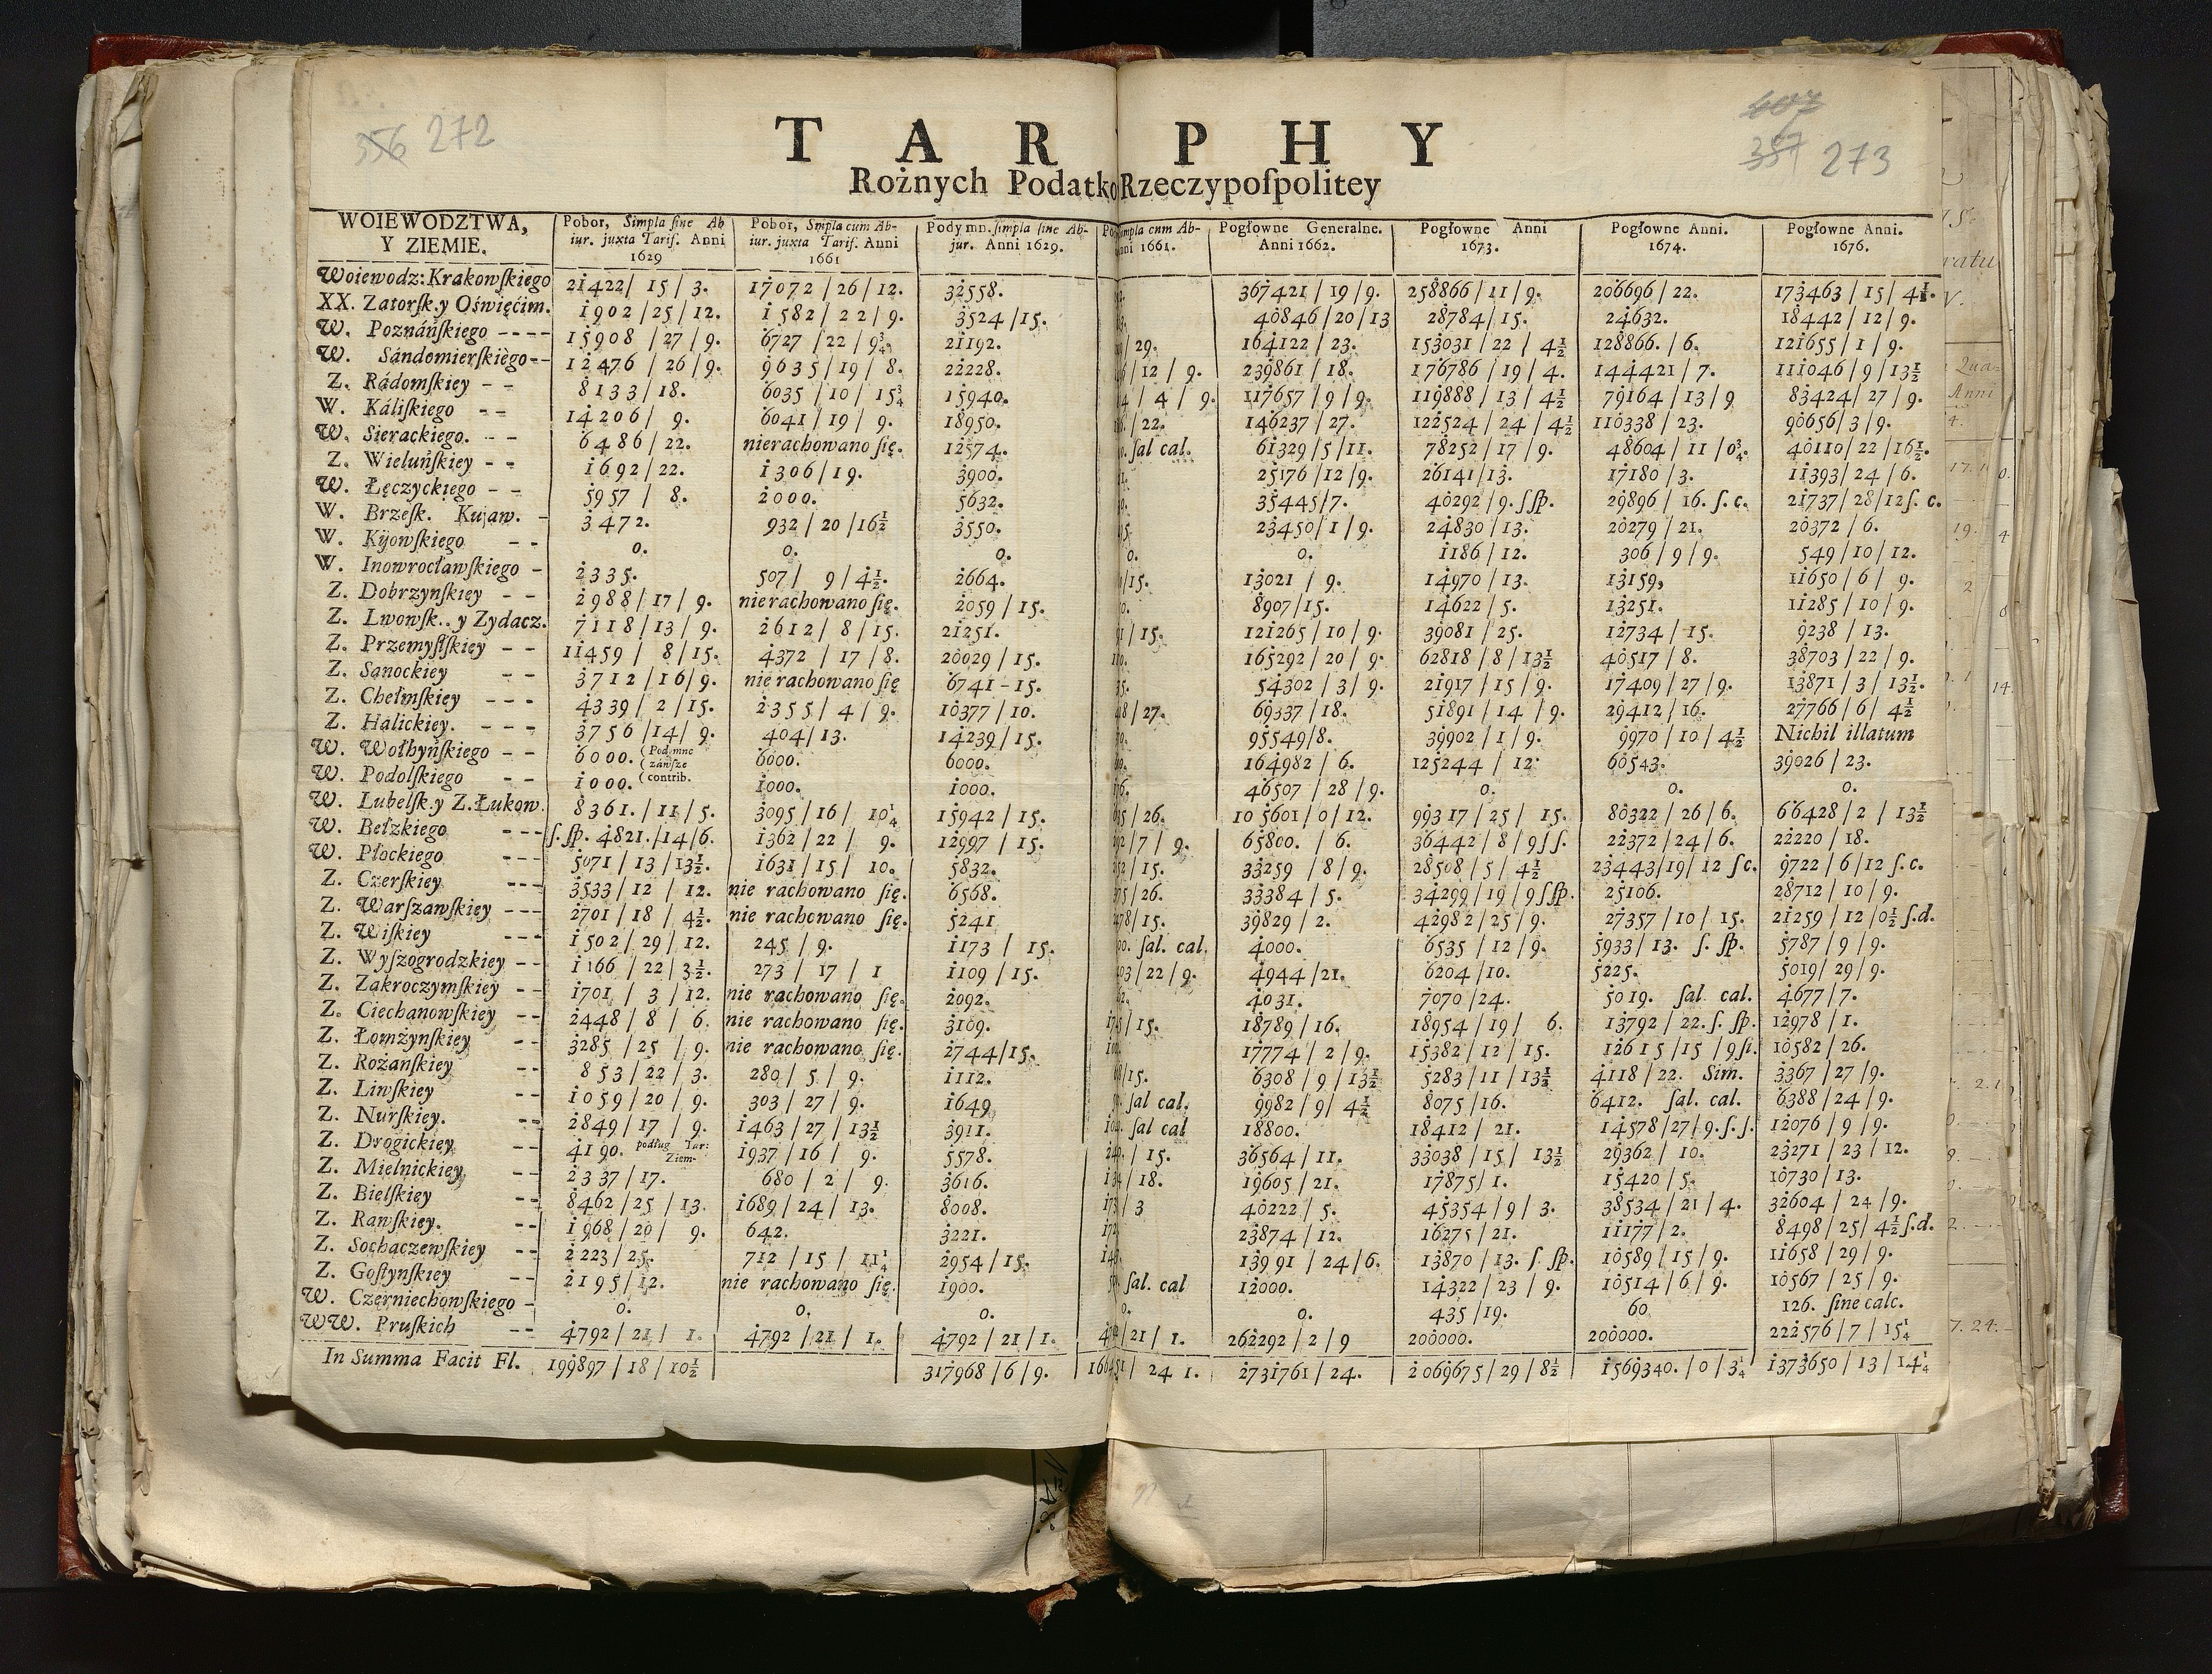 356 272
607
357 273
T A R P H Y
Rożnych Podatko Rzeczypoſpolitey
WOIEWODZTWA, Y ZIEMIE. | Pobor, Simpla ſine Ab iur. juxta Tarif. Anni 1629 | Pobor, Smpla cum Ab- iur. juxta Tarif. Anni 1661 | Podymn. ſimpla ſine Ab- jur. Anni 1629. | Po impla cnm Ab- nni 1661. | Pogłowne Generalne. Anni 1662. | Pogłowne Anni 1673. | Pogłowne Anni. 1674. | Pogłowne Anni. 1676.
Woiewodz: Krakowſkiego | 21422/ 15 / 3. | 17072 / 26 / 12. | 32558. | | 367421 / 19 / 9. | 258866 / 11 / 9. | 206696 / 22. | 173463 / 15 / 4½.
XX. Zatorſk. y Oświęćim. | 1902 / 25 / 12. | 1582 / 22 / 9. | 3524 / 15. | | 40846 / 20 / 13 | 28784 / 15. | 24632. | 18442 / 12 / 9.
W. Poznáńſkiego ---- | 15908 / 27 / 9. | 6727 / 22 / 9¾. | 21192. | / 29. | 164122 / 23. | 153031 / 22 / 4½ | 128866. / 6. | 121655 / 1 / 9.
W. Sándomierſkiègo -- | 12476 / 26 / 9. | 9635 / 19 / 8. | 22228. | / 12 / 9. | 239861 / 18. | 176786 / 19 / 4. | 144421 / 7. | 111046 / 9 / 13½
Z. Rádomſkiey - - | 8133 / 18. | 6035 / 10 / 15¾ | 15940. | 4 / 4 / 9. | 117657 / 9 / 9. | 119888 / 13 / 4½ | 79164 / 13 / 9 | 83424 / 27 / 9.
W. Káliſkiego - - | 14206 / 9. | 6041 / 19 / 9. | 18950. | / 22. | 146237 / 27. | 122524 / 24 / 4½ | 110338 / 23. | 90656 / 3 / 9.
W. Sierackiego. - - | 6486 / 22. | nierachowano ſię. | 12574. | . ſal cal. | 61329 / 5 / 11. | 78252 / 17 / 9. | 48604 / 11 / 0¾. | 40110 / 22 / 16½.
Z. Wieluńſkiey - - | 1692 / 22. | 1306 / 19. | 3900. | | 25176 / 12 / 9. | 26141 / 13. | 17180 / 3. | 11393 / 24 / 6.
W. Łęczyckiego - - | 5957 / 8. | 2000. | 5632. | | 35445 / 7. | 40292 / 9. ſſp. | 29896 / 16. ſ. c. | 21737 / 28 / 12 ſ. c.
W. Brzeſk. Kujaw. - | 3472. | 932 / 20 / 16½ | 3550. | 95. | 23450 / 1 / 9. | 24830 / 13. | 20279 / 21. | 20372 / 6.
W. Kijowſkiego - - | 0. | 0. | 0. | 0. | 0. | 1186 / 12. | 306 / 9 / 9. | 549 / 10 / 12.
W. Inowrocławſkiego - | 2335. | 507 / 9 / 4½. | 2664. | /15. | 13021 / 9. | 14970 / 13. | 13159, | 11650 / 6 / 9.
Z. Dobrzynſkiey - - | 2988 / 17 / 9. | nierachowano ſię. | 2059 / 15. | 0. | 8907 / 15. | 14622 / 5. | 13251. | 11285 / 10 / 9.
Z. Lwowſk.. y Zydacz. | 7118 / 13 / 9. | 2612 / 8 / 15. | 21251. | 1 / 15. | 121265 / 10 / 9. | 39081 / 25. | 12734 / 15. | 9238 / 13.
Z. Przemyſlſkiey - - | 11459 / 8 / 15. | 4372 / 17 / 8. | 20029 / 15. | | 165292 / 20 / 9. | 62818 / 8 / 13½ | 40517 / 8. | 38703 / 22 / 9.
Z. Sanockiey - - | 3712 / 16 / 9. | nie rachowano ſię | 6741 - 15. | 35. | 54302 / 3 / 9. | 21917 / 15 / 9. | 17409 / 27 / 9. | 13871 / 3 / 13½.
Z. Chełmſkiey - - - | 4339 / 2 / 15. | 2355 / 4 / 9. | 10377 / 10. | 8 / 27. | 69337 / 18. | 51891 / 14 / 9. | 29412 / 16. | 27766 / 6 / 4½
Z. Halickiey. - - - | 3756 / 14 / 9. | 404 / 13. | 14239 / 15. | | 95549 / 8. | 39902 / 1 / 9. | 9970 / 10 / 4½ | Nichil illatum
W. Wołhyńſkiego - - | 6000. (Podymne záwſze contrib. | 6000. | 6000. | | 164982 / 6. | 125244 / 12. | 60543. | 39026 / 23.
W. Podolſkiego - - | 1000. | 1000. | 1000. | | 46507 / 28 / 9. | 0. | 0. | 0.
W. Lubelſk. y Z. Łukow. | 8361. / 11 / 5. | 3095 / 16 / 10¼ | 15942 / 15. | 35 / 26. | 105601 / 0 / 12. | 99317 / 25 / 15. | 80322 / 26 / 6. | 66428 / 2 / 13½
W. Bełzkiego --- | ſ. ſp. 4821. / 14 / 6. | 1362 / 22 / 9. | 12997 / 15. | 92 / 7 / 9. | 65800. / 6. | 36442 / 8 / 9 ſſ. | 22372 / 24 / 6. | 22220 / 18.
W. Płockiego --- | 5071 / 13 / 13½. | 1631 / 15 / 10. | 5832. | 52 / 15. | 33259 / 8 / 9. | 28508 / 5 / 4½ | 23443 / 19 / 12 ſc. | 9722 / 6 / 12 ſ. c.
Z. Czerſkiey --- | 3533 / 12 / 12. | nie rachowano ſię. | 6568. | 75 / 26. | 33384 / 5. | 34299 / 19 / 9 ſſp. | 25106. | 28712 / 10 / 9.
Z. Warſzawſkiey --- | 2701 / 18 / 4½. | nie rachowano ſię. | 5241 | 78 / 15. | 39829 / 2. | 42982 / 25 / 9. | 27357 / 10 / 15. | 21259 / 12 / 0½ ſ. d.
Z. Wiſkiey --- | 1502 / 29 / 12. | 245 / 9. | 1173 / 15. | 00. ſal. cal. | 4000. | 6535 / 12 / 9. | 5933 / 13. ſ. ſp. | 5787 / 9 / 9.
Z. Wyſzogrodzkiey -- | 1166 / 22 / 3½. | 273 / 17 / 1 | 1109 / 15. | 03 / 22 / 9. | 4944 / 21. | 6204 / 10. | 5225. | 5019 / 29 / 9.
Z. Zakroczymſkiey -- | 1701 / 3 / 12. | nie rachowano ſię. | 2092. | 62. | 4031. | 7070 / 24. | 5019. ſal. cal. | 4677 / 7.
Z. Ciechanowſkiey -- | 2448 / 8 / 6. | nie rachowano ſię. | 3109. | / 15. | 18789 / 16. | 18954 / 19 / 6. | 13792 / 22. ſ. ſp. | 12978 / 1.
Z. Łomżynſkiey -- | 3285 / 25 / 9. | nie rachowano ſię. | 2744 / 15. | | 17774 / 2 / 9. | 15382 / 12 / 15. | 12615 / 15 / 9 ſi. | 10582 / 26.
Z. Rożanſkiey -- | 853 / 22 / 3. | 280 / 5 / 9. | 1112. | /15. | 6308 / 9 / 13½ | 5283 / 11 / 13½ | 4118 / 22. Sim. | 3367 / 27 / 9.
Z. Liwſkiey -- | 1059 / 20 / 9. | 303 / 27 / 9. | 1649 | . ſal cal. | 9982 / 9 / 4½ | 8075 / 16. | 6412. ſal. cal. | 6388 / 24 / 9.
Z. Nurſkiey. -- | 2849 / 17 / 9. | 1463 / 27 / 13½ | 3911. | . ſal cal | 18800. | 18412 / 21. | 14578 / 27 / 9. ſ. ſ. | 12076 / 9 / 9.
Z. Drogickiey -- | 4190. podług Tar: Ziem- | 1937 / 16 / 9. | 5578. | / 15. | 36564 / 11. | 33038 / 15 / 13½ | 29362 / 10. | 23271 / 23 / 12.
Z. Mielnickiey -- | 2337 / 17. | 680 / 2 / 9. | 3616. | / 18. | 19605 / 21. | 17875 / 1. | 15420 / 5. | 10730 / 13.
Z. Bielſkiey -- | 8462 / 25 / 13. | 1689 / 24 / 13. | 8008. | / 3 | 40222 / 5. | 45354 / 9 / 3. | 38534 / 21 / 4. | 32604 / 24 / 9.
Z. Rawſkiey. -- | 1968 / 20 / 9. | 642. | 3221. | | 23874 / 12. | 16275 / 21. | 11177 / 2. | 8498 / 25 / 4½ ſ. d.
Z. Sochaczewſkiey -- | 2223 / 25. | 712 / 15 / 11¼ | 2954 / 15. | | 13991 / 24 / 6. | 13870 / 13. ſ. ſp. | 10589 / 15 / 9. | 11658 / 29 / 9.
Z. Goſtynſkiey -- | 2195 / 12. | nie rachowano ſię. | 1900. | ſal. cal | 12000. | 14322 / 23 / 9. | 10514 / 6 / 9. | 10567 / 25 / 9.
W. Czerniechowſkiego - | 0. | 0. | 0. | 0. | 0. | 435 / 19. | 60. | 126. ſine calc.
WW. Pruſkich -- | 4792 / 21 / 1. | 4792 / 21 / 1. | 4792 / 21 / 1. | / 21 / 1. | 262292 / 2 / 9 | 200000. | 200000. | 222576 / 7 / 15¼
In Summa Facit Fl. | 199897 / 18 / 10½ | | 317968 / 6 / 9. | / 24 1. | 2731761 / 24. | 2069675 / 29 / 8½ | 1569340. / 0 / 3¼ | 1373650 / 13 / 14¼